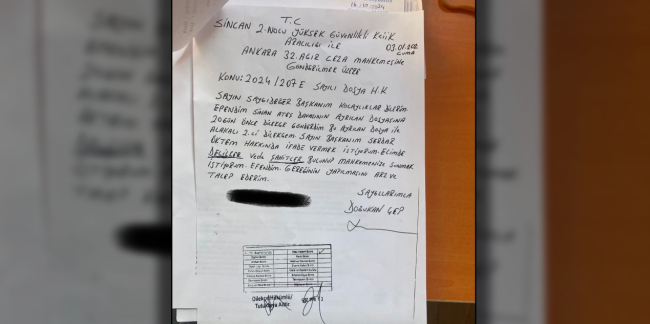 16.10.2024
T.C
SİNCAN 2. NOLU YÜKSEK GÜVENLİKLİ KCİK
ARACILIĞI İLE
03.01.202
CUMA
ANKARA 32. AĞIR CEZA MAHKEMESİNE
GÖNDERİLMEK ÜZERE
KONU: 2024/207 E SAYILI DOSYA H.K
SAYIN SAYGIDEĞER BAŞKANIM KOLAYLIKLAR DİLERİM.
EFENDİM SİNAN ATEŞ DAVASININ AYRILAN DOSYASINA
20 GÜN ÖNCE DİLEKÇE GÖNDERDİM BU AYRILAN DOSYA İLE
ALAKALI 2.Cİ DİLEKÇEM. SAYIN BAŞKANIM SERDAR
ÖKTEM HAKKINDA İFADE VERMEK İSTİYORUM. ELİMDE
DELİLLER VEDE ŞAHİTLER BULUNUP MAHKEMENİZE SUNMAK
İSTİYORUM. EFENDİM. GEREĞİNİN YAPILMASINI ARZ VE
TALEP EDERİM.
SAYGILARIMLA
DOĞUKAN ÇEP
Dilekçe Hükümlü/
Tutukluya Aittir.